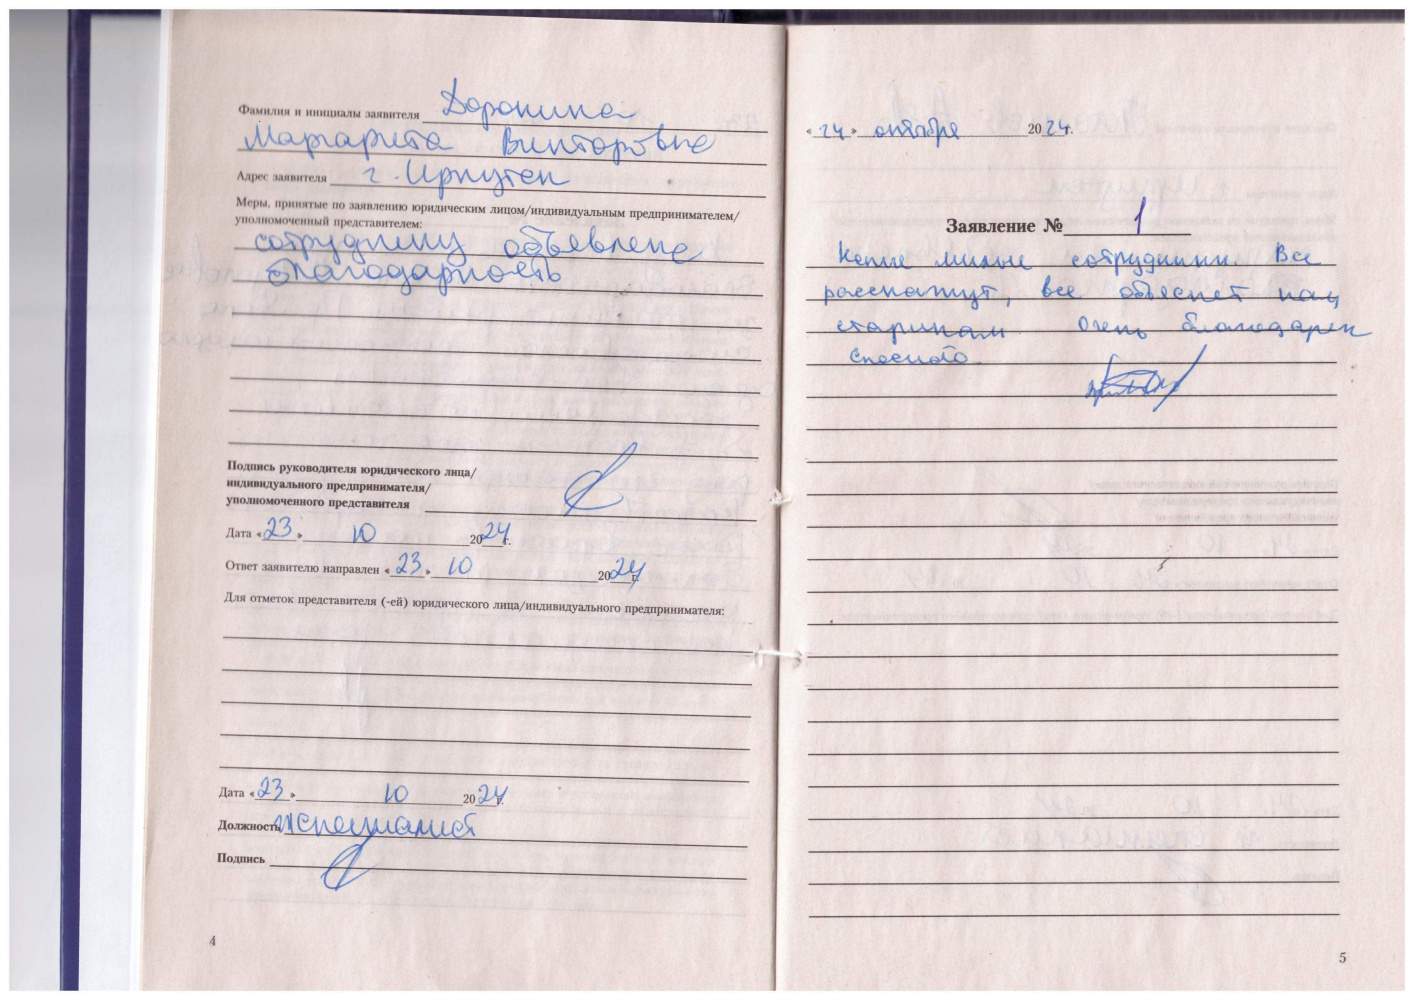 Фамилия и инициалы заявителя Доронина
Маргарита Викторовна
Адрес заявителя г. Иркутск
Меры, принятые по заявлению юридическим лицом/индивидуальным предпринимателем/
уполномоченный представителем:
сотруднику объявлена
благодарность
Подпись руководителя юридического лица/
индивидуального предпринимателя/
уполномоченного представителя
Дата «23» 10 2024г.
Ответ заявителю направлен «23» 10 2024г.
Для отметок представителя (-ей) юридического лица/индивидуального предпринимателя:
Дата «23» 10 2024г.
Должность специалист
Подпись
4
«24» октября 2024г.
Заявление № 1
милые сотрудники Все
расскажут, все объяснет нам
старикам Очень благодарен
спасибо
5